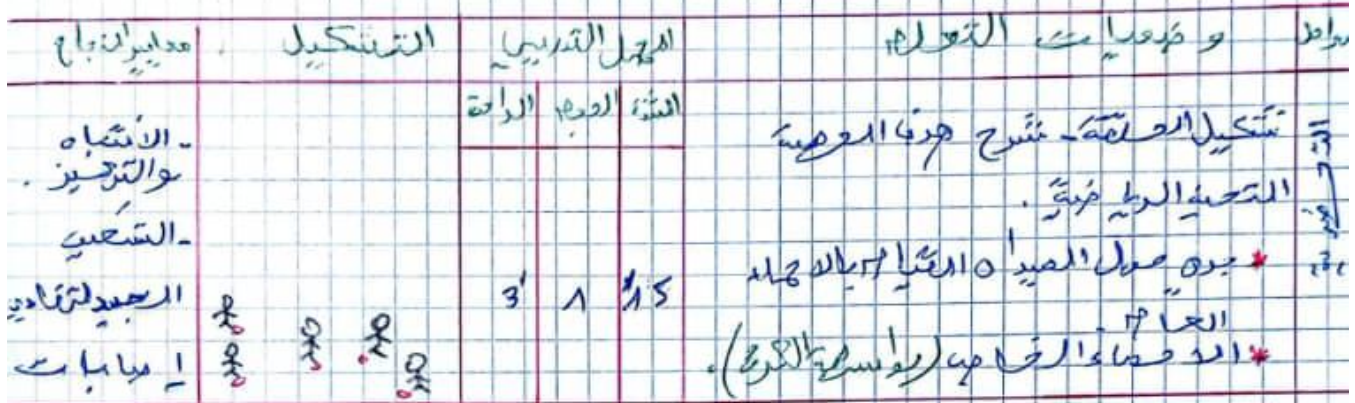 وضعيات التعلم
الحمل التدريبي
التشكيل
معايير النجاح
الشدة
الحجم
الراحة
تشكيل الفوج - شرح هدف الحصة
التحية الرياضية.
* جري حول الميدان القيام بالاحماء
العام.
* الاحماء الخاص (بواسطة الكرة).
15'
1
3'
- الانتباه
والتركيز.
- التسخين
الجيد لتفادي
إصابات